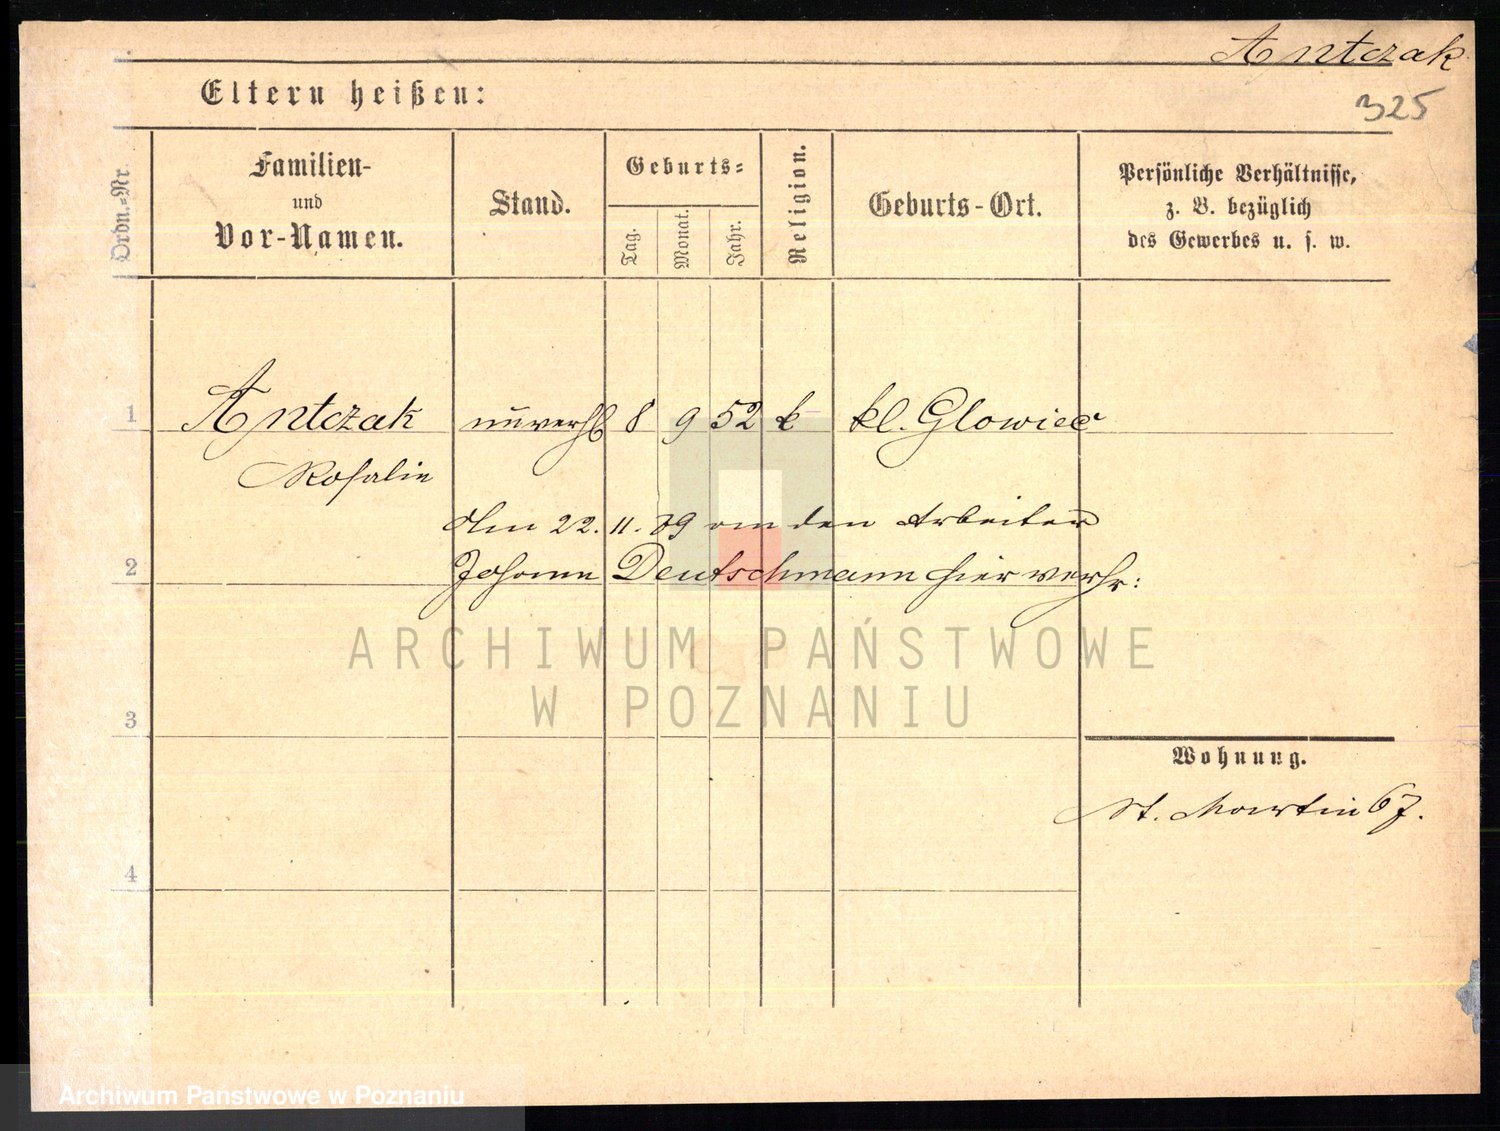 Antczak
325
Eltern heißen:
Ordn.-Nr.
Familien-
und
Vor-Namen.
Stand.
Geburts-
Tag.
Monat.
Jahr.
Religion.
Geburts-Ort.
Persönliche Verhältnisse,
z. B. bezüglich
des Gewerbes u. s. w.
1 Antczak unverh 8 9 52 k kl. Glowiec
Rosalie
Am 22. 11. 89 an den Arbeiter
2 Johann Deutschmann hier verhr:
ARCHIWUM PAŃSTWOWE
W POZNANIU
3
Wohnung.
St. Martin 67.
4
Archiwum Państwowe w Poznaniu